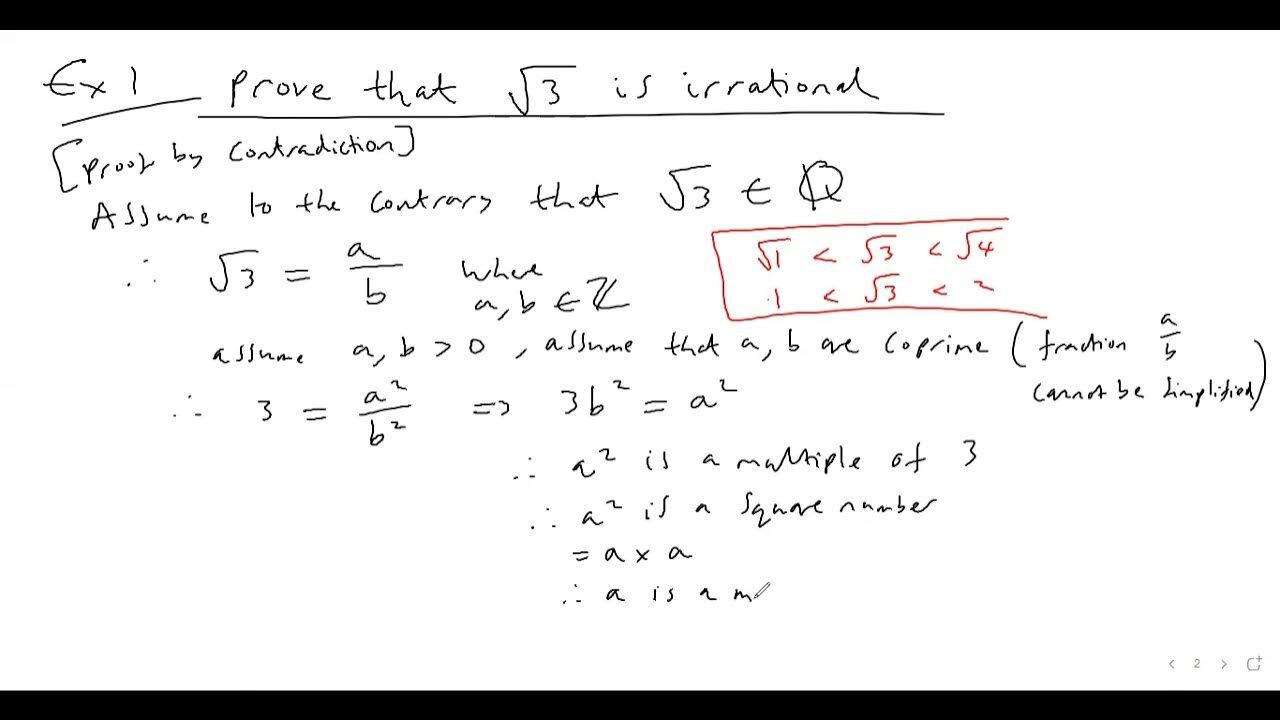 Ex 1 Prove that √3 is irrational
[Proof by Contradiction]
Assume to the contrary that √3 ∈ ℚ
∴ √3 = a/b where a, b ∈ ℤ
√1 < √3 < √4
1 < √3 < 2
assume a, b > 0, assume that a, b are coprime (fraction a/b cannot be simplified)
∴ 3 = a²/b² => 3b² = a²
∴ a² is a multiple of 3
∴ a² is a square number
= a × a
∴ a is a m
< 2 >